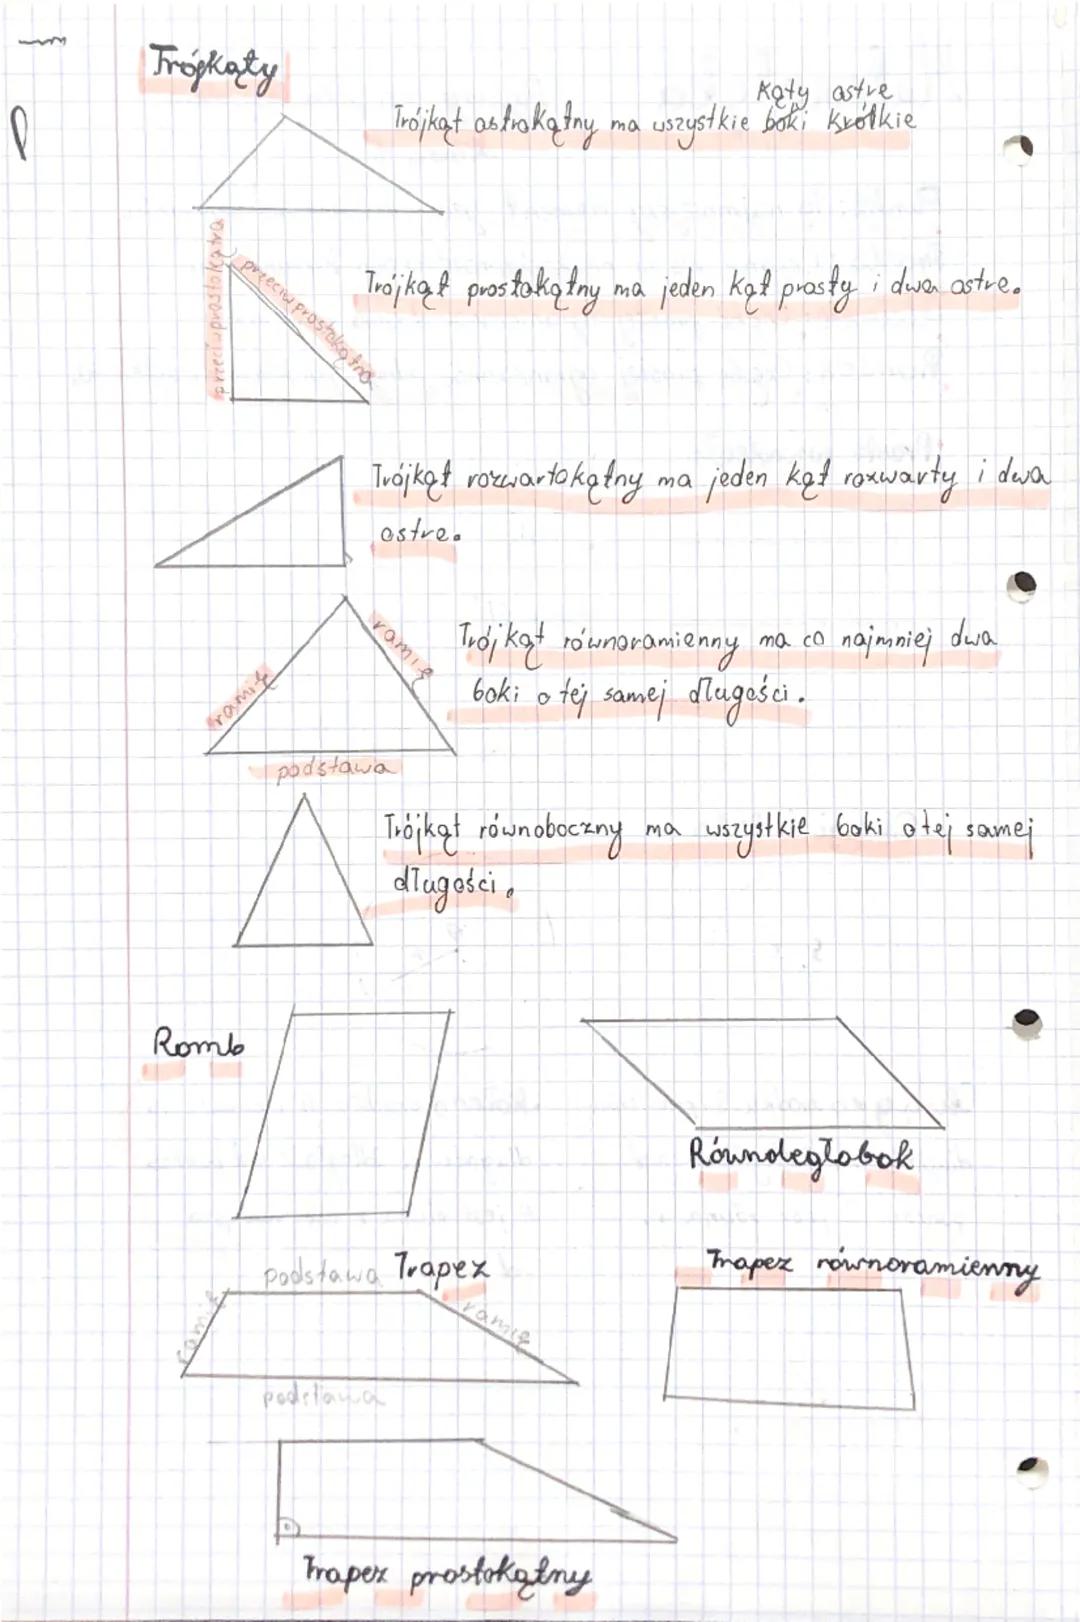 Trójkąty
kąty ostre
Trójkąt ostrokątny ma wszystkie boki krótkie
przeciwprostokątna
przeciwprostokątna
Trójkąt prostokątny ma jeden kąt prosty i dwa ostre.
Trójkąt rozwartokątny ma jeden kąt rozwarty i dwa
ostre.
ramię
ramię
Trójkąt równoramienny ma co najmniej dwa
boki o tej samej długości.
podstawa
Trójkąt równoboczny ma wszystkie boki o tej samej
długości.
Romb
Równoległobok
podstawa Trapez
ramię
ramię
podstawa
Trapez równoramienny
Trapez prostokątny